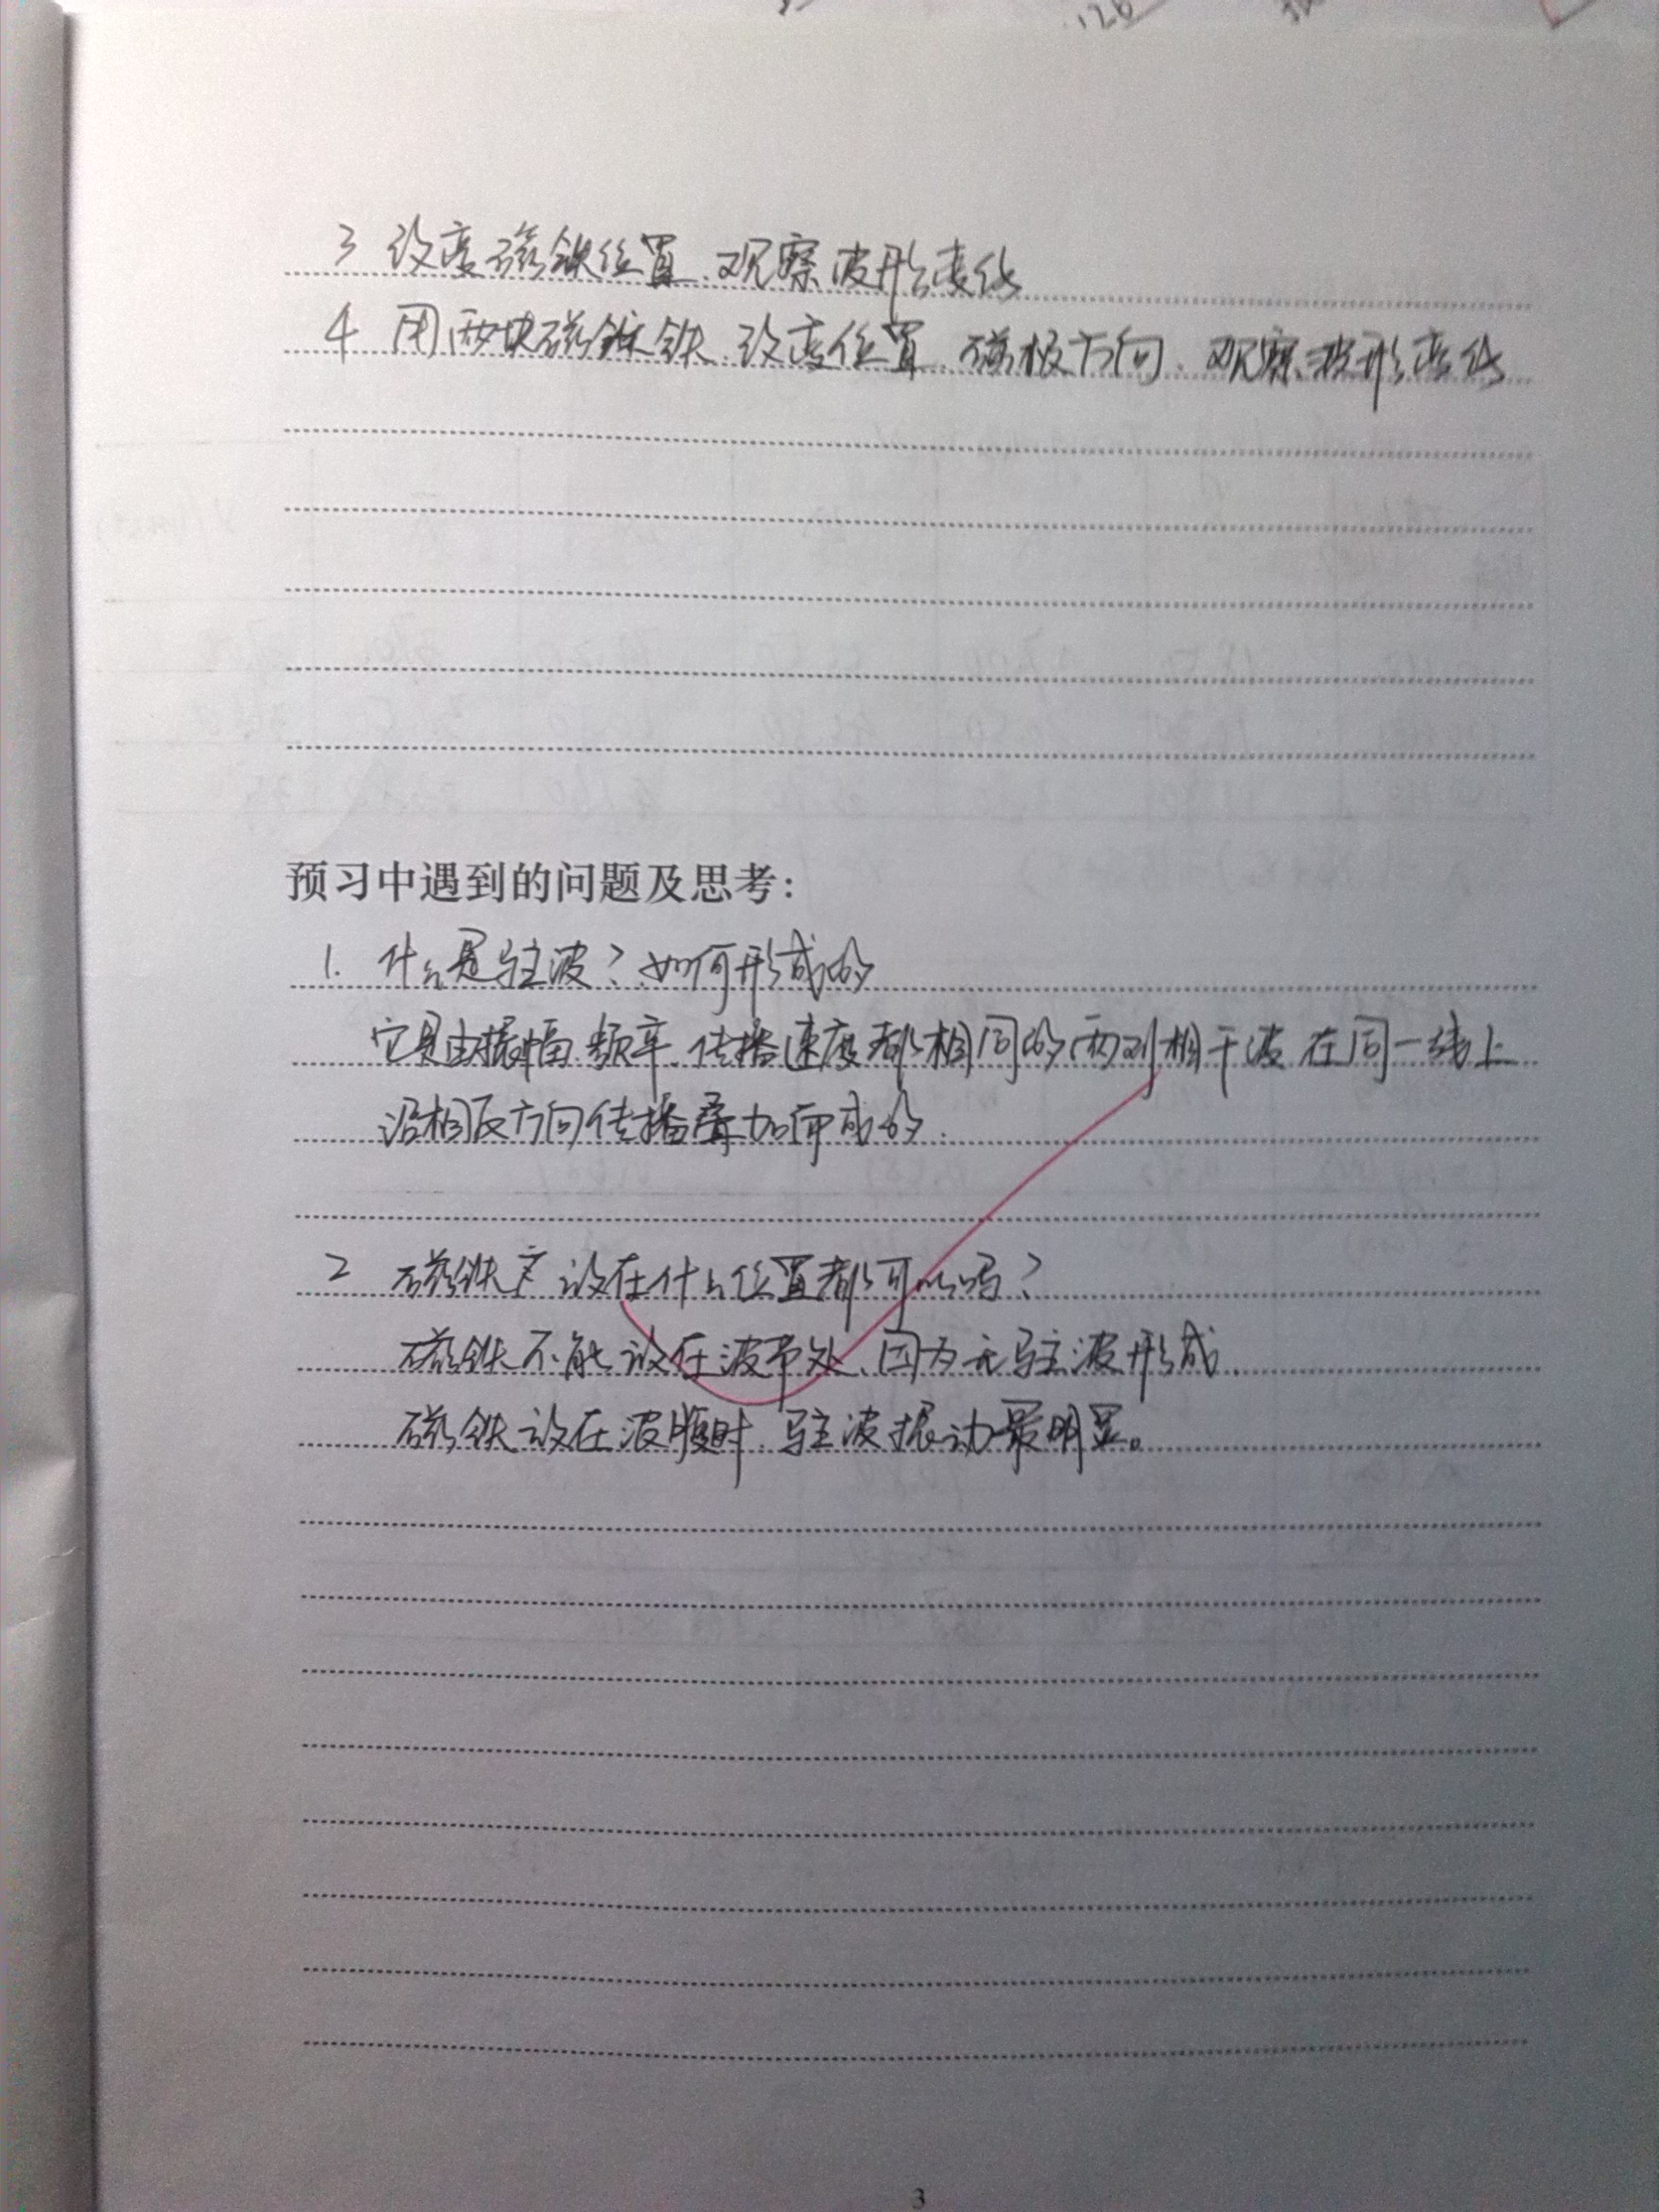 126
3 改变磁铁位置、观察波形变化
4 用两块磁铁、改变位置、磁极方向、观察波形变化
预习中遇到的问题及思考:
1. 什么是驻波？如何形成的
它是由振幅、频率、传播速度都相同的两列相干波在同一线上
沿相反方向传播叠加而成的.
2 磁铁 设在什么位置都可以吗？
磁铁不能设在波节处、因为无驻波形成.
磁铁设在波腹时、驻波振动最明显。
3